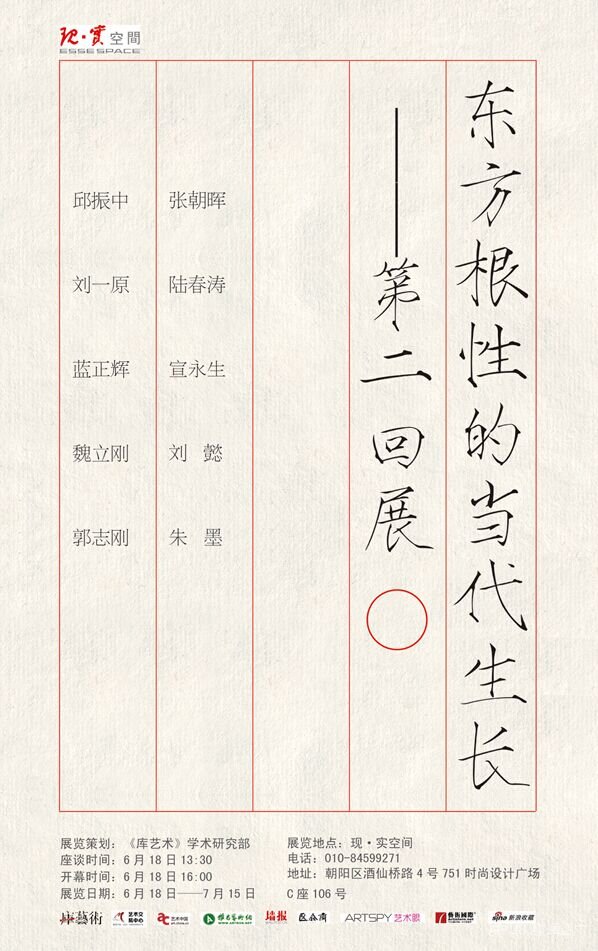 现·實空間
ESSE SPACE
东方根性的当代生长
——第二回展
邱振中 张朝晖
刘一原 陆春涛
蓝正辉 宣永生
魏立刚 刘 懿
郭志刚 朱 墨
展览策划：《库艺术》学术研究部
座谈时间：6月18日13:30
开幕时间：6月18日16:00
展览日期：6月18日——7月15日
展览地点：现·实空间
电话：010-84599271
地址：朝阳区酒仙桥路4号751时尚设计广场
C座106号
库艺術 艺术交流中心 艺术中国 雅昌艺术网 墙报 ARTSPY艺术眼 藝術國際 sina新浪收藏